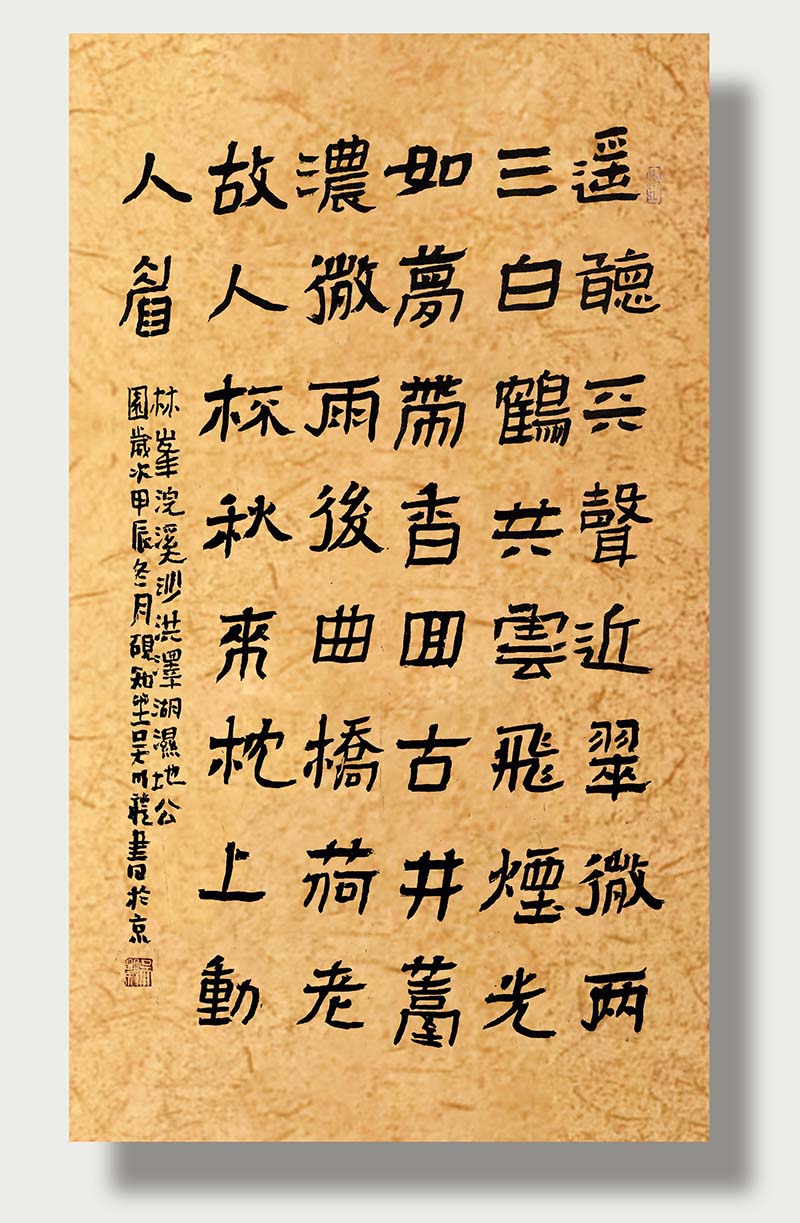 遥聽聲近翠微兩
三白鶴共雲飛煙光
如夢帶香回古井薹
濃微雨後曲橋荷老
故人秋來枕上動
人眉
林峯浣溪沙洪澤湖濕地公
園歲次甲辰冬月硯知堂吴川書於京